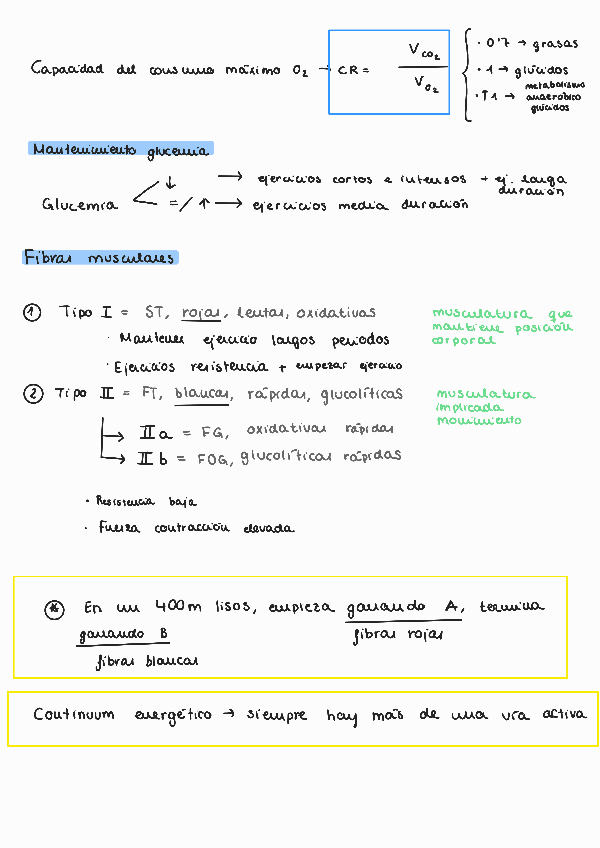 Capacidad del consumo máximo O₂ → CR = V_CO₂ / V_O₂
· 0'7 → grasas
· 1 → glúcidos
· ↑1 → metabolismo anaeróbico glúcidos
Mantenimiento glucemia
Glucemia
↓ → ejercicios cortos e intensos + ej. larga duración
=/↑ → ejercicios media duración
Fibras musculares
① Tipo I = ST, rojas, lentas, oxidativas
musculatura que
mantiene posición
corporal
· Mantener ejercicio largos periodos
· Ejercicios resistencia + empezar ejercicio
② Tipo II = FT, blancas, rápidas, glucolíticas
musculatura
implicada
movimiento
→ II a = FG, oxidativas rápidas
→ II b = FOG, glucolíticas rápidas
· Resistencia baja
· Fuerza contracción elevada
* En un 400m lisos, empieza ganando A, termina
fibras rojas
ganando B
fibras blancas
Continuum energético → siempre hay más de una vía activa